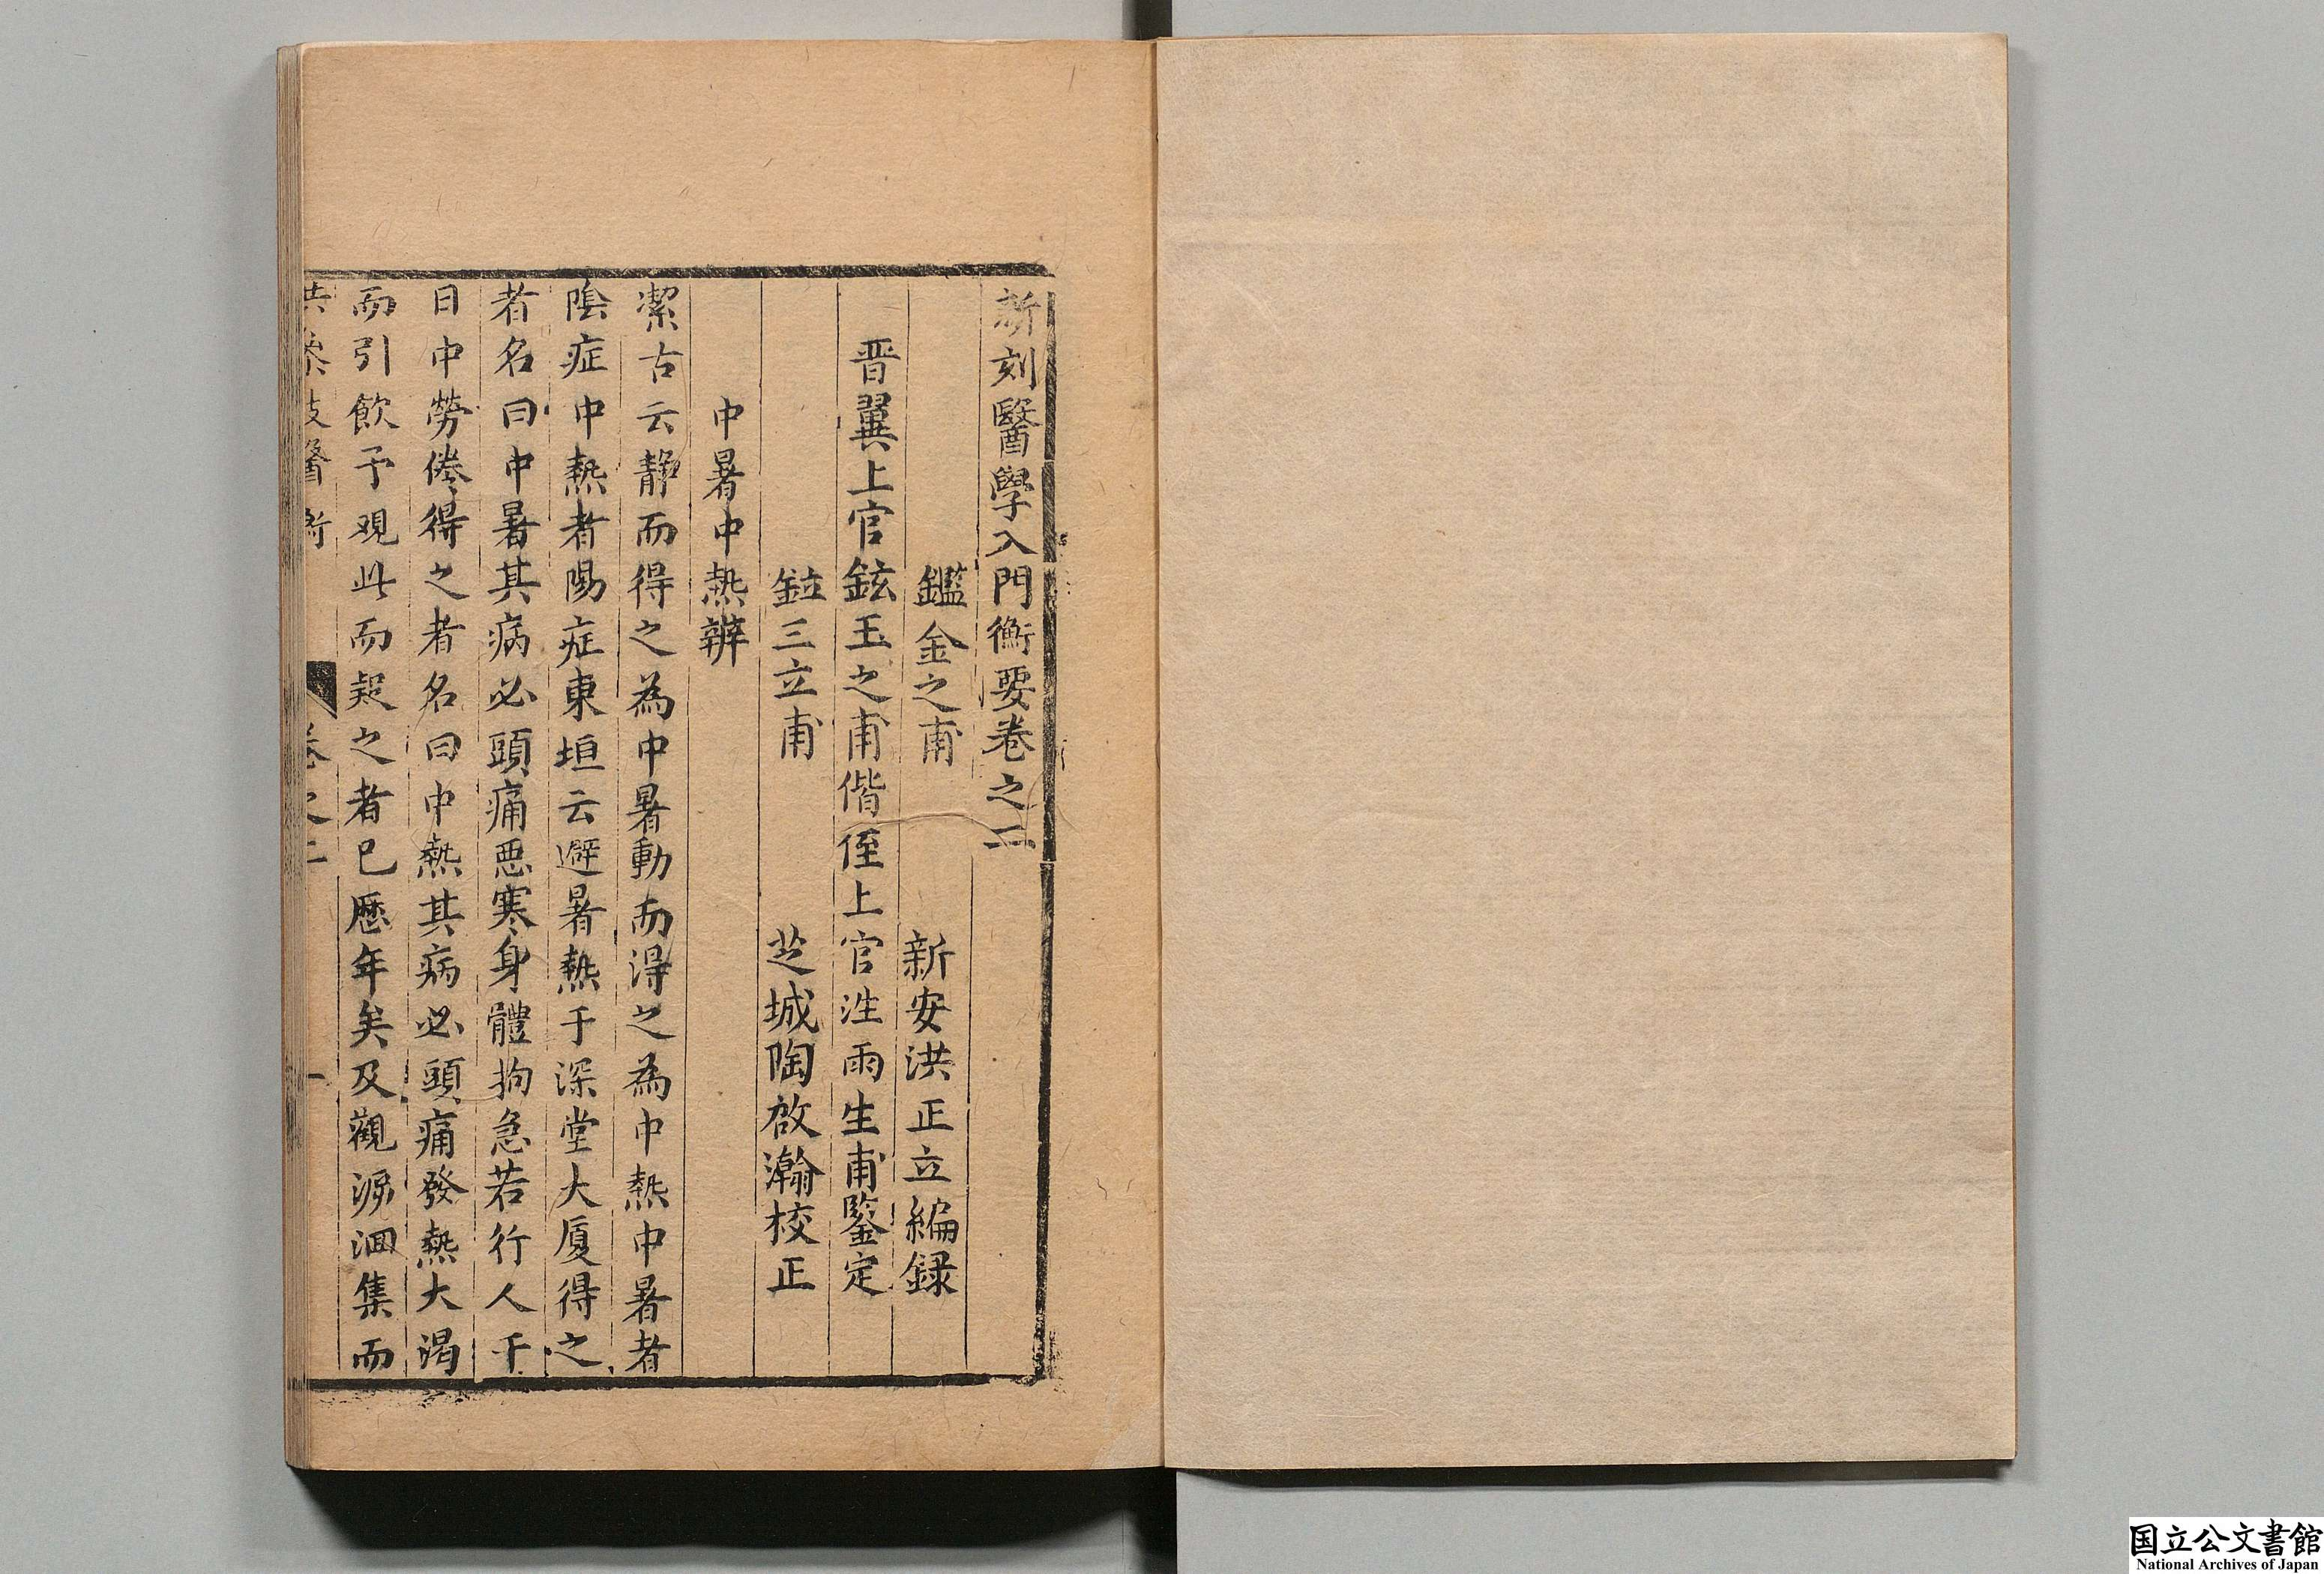 新刻醫學入門衡要卷之二
鑑金之甫　新安洪正立編録
晋翼上官鉉玉之甫偕侄上官泩雨生甫鑒定
鉝三立甫　芝城陶啟瀚校正
中暑中熱辨
潔古云靜而得之為中暑動而得之為中熱中暑者
陰症中熱者陽症東垣云避暑熱于深堂大厦得之
者名曰中暑其病必頭痛惡寒身體拘急若行人于
日中勞倦得之者名曰中熱其病必頭痛發熱大渴
而引飲予观此而疑之者已歷年矣及觀泝洄集而
醫衡　卷之二　一
国立公文書館
National Archives of Japan